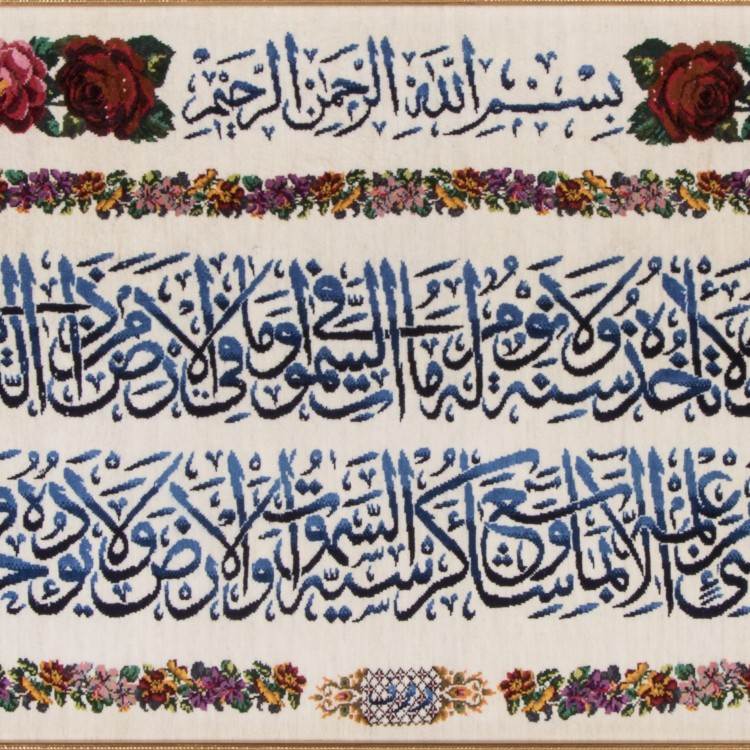 بِسْمِ اللَّهِ الرَّحْمَنِ الرَّحِيمِ
لَا تَأْخُذُهُ سِنَةٌ وَلَا نَوْمٌ لَهُ مَا فِي السَّمَوَاتِ وَمَا فِي الْأَرْضِ مَنْ ذَا
عِلْمِهِ إِلَّا بِمَا شَاءَ وَسِعَ كُرْسِيُّهُ السَّمَوَاتِ وَالْأَرْضَ وَلَا يَؤُدُهُ